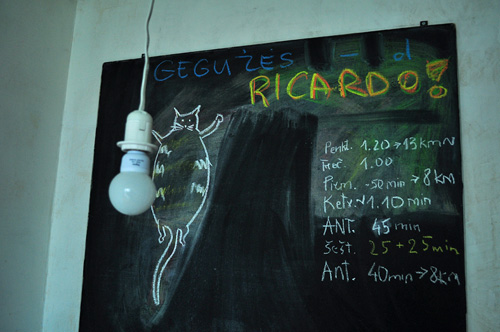 GEGUŽĖS - d
RICARDO!
Penkt. 1.20 > 13 km
Treč. 1.00
Pirm. -50 min > 8 KM
Ketv. 1.10 min
ANT. 45 min
Šešt. 25 + 25 min
Ant. 40 min > 8 km